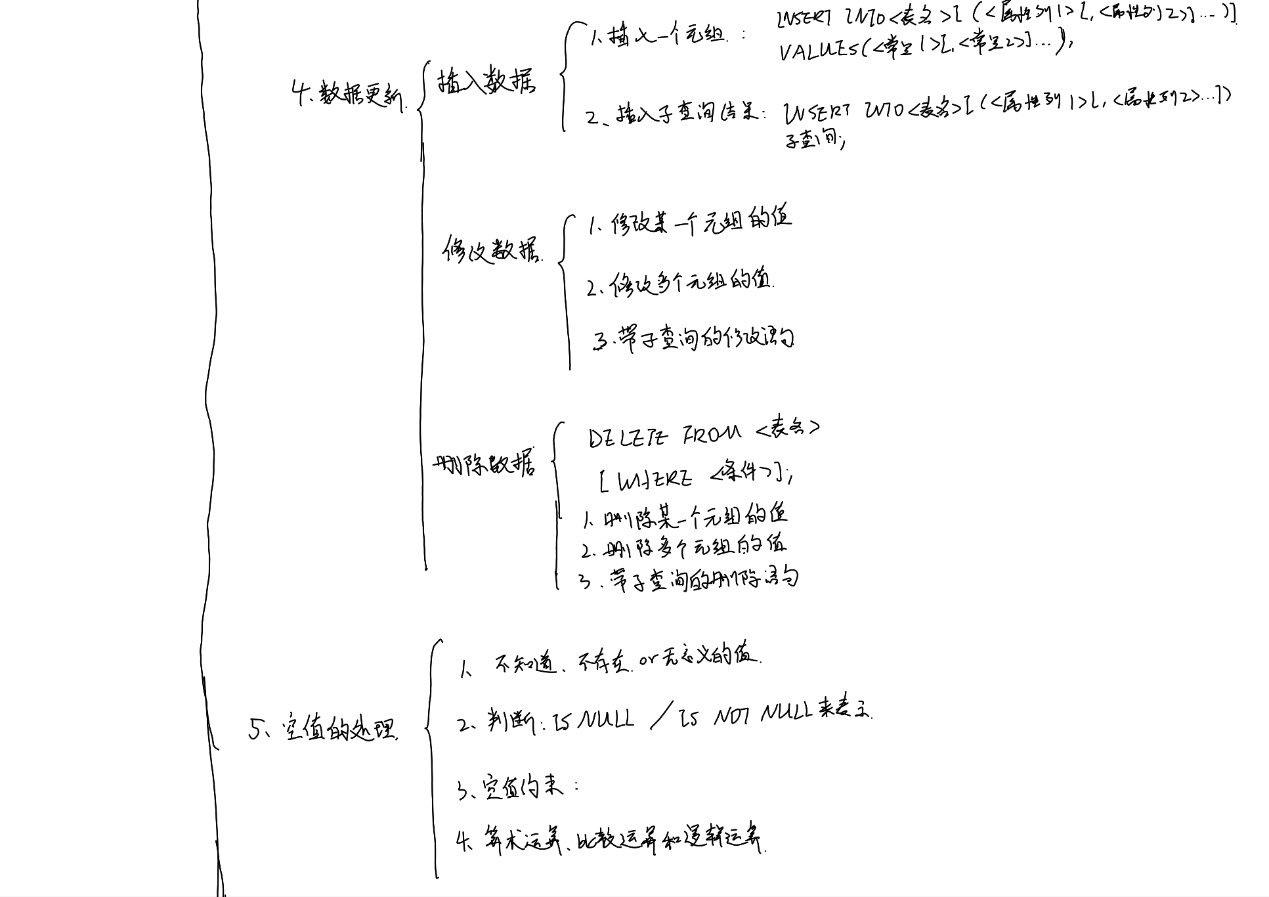 4、数据更新
插入数据
1、插入一个元组：INSERT INTO<表名>[(<属性列1>[,<属性列2>]...)]
VALUES(<常量1>[,<常量2>]...);
2、插入子查询结果：INSERT INTO<表名>[(<属性列1>[,<属性列2>...])
子查询;
修改数据
1、修改某一个元组的值
2、修改多个元组的值
3.带子查询的修改语句
删除数据
DELETE FROM <表名>
[WHERE <条件>];
1、删除某一个元组的值
2.删除多个元组的值
3.带子查询的删除语句
5、空值的处理
1、不知道、不存在or无意义的值
2、判断：IS NULL / IS NOT NULL来表示
3、空值约束：
4、算术运算、比较运算和逻辑运算